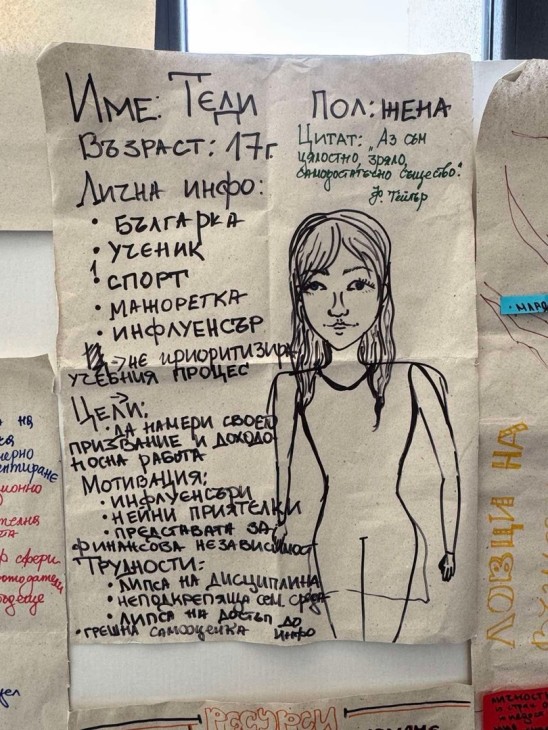 Име: Теди
Възраст: 17г.
Лична инфо:
• Българка
• Ученик
• Спорт
• Мажоретка
• Инфлуенсър
→ не приоритизира
учебния процес
Цели:
• да намери своето
призвание и доходо-
носна работа
Мотивация:
• инфлуенсъри
• нейни приятелки
• представата за
финансова независимост
Трудности:
• липса на дисциплина
• неподкрепяща сем. среда
• липса на достъп до
инфо
• грешна самооценка
Пол: жена
Цитат: „Аз съм
цялостно, зряло,
самодостатъчно същество."
Ф. Тейлър
• МАРА
ЛОВЦИ НА
на
ентиране
р сфери
РЕСУРСИ